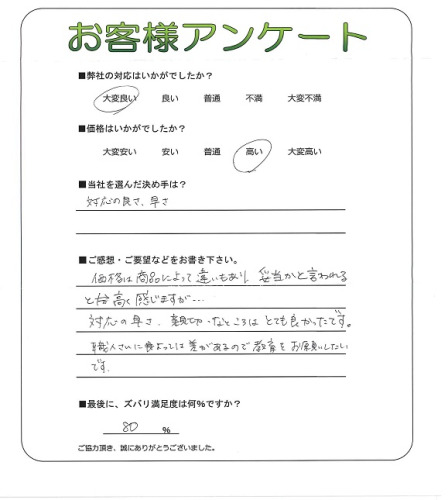 お客様アンケート
■弊社の対応はいかがでしたか？
大変良い 良い 普通 不満 大変不満
■価格はいかがでしたか？
大変安い 安い 普通 高い 大変高い
■当社を選んだ決め手は？
対応の良さ、早さ
■ご感想・ご要望などをお書き下さい。
価格は商品によって違いもあり、妥当かと言われる
と 高く感じますが…
対応の早さ、親切なところはとても良かったです。
職人さんに よっては差があるので教育をお願いしたい
です。
■最後に、ズバリ満足度は何％ですか？
80 ％
ご協力頂き、誠にありがとうございました。